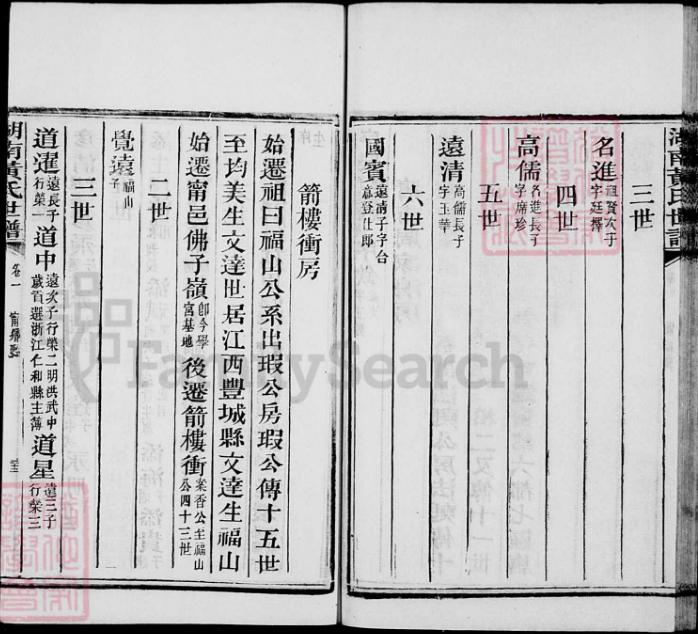 湖南黃氏世譜
三世
名進 祖賢次子
字廷擇
四世
高儒 名進長子
字席珍
五世
遠清 高儒長子
字玉華
六世
國賓 遠清子字台
意登仕郎
箭樓衝房
始遷祖曰福山公系出瑕公房瑕公傳十五世
至均美生文達世居江西豐城縣文達生福山
始遷甯邑佛子嶺 卽今學
宮基地 後遷箭樓衝 案香公至福山
公四十三世
二世
覺遠 福山
子
三世
道暹 遠長子
行榮一 道中 遠次子行榮二明洪武中
歲貢選浙江仁和縣主簿 道星 遠三子
行榮三
湖南黃氏世譜 卷一
FamilySearch